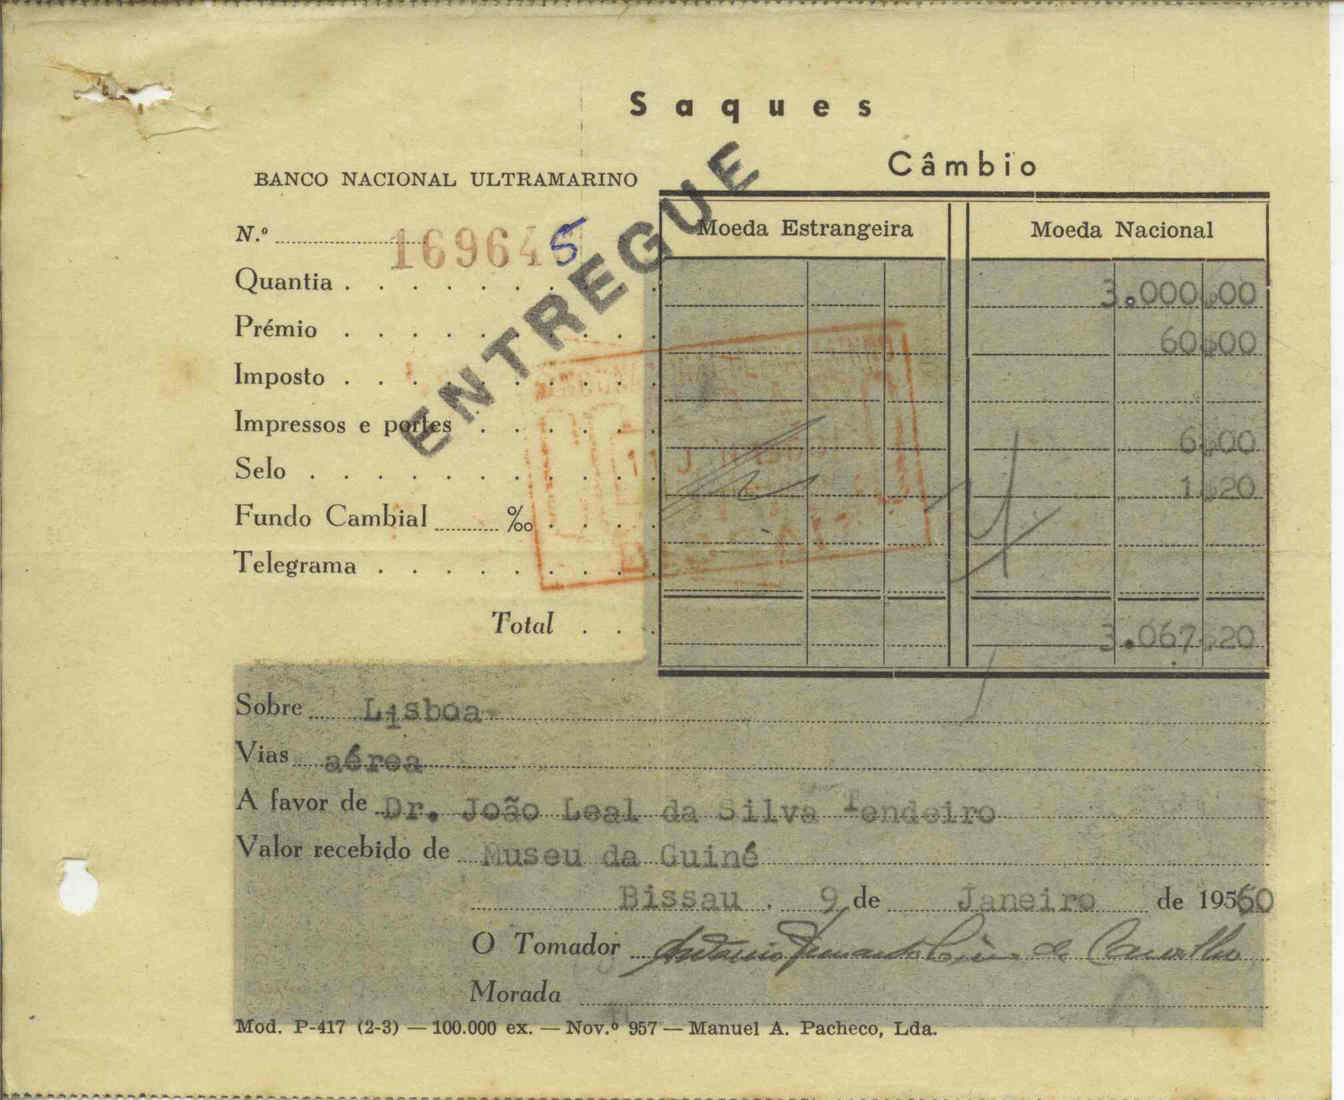 Saques
Câmbio
BANCO NACIONAL ULTRAMARINO
ENTREGUE
Moeda Estrangeira Moeda Nacional
N.º 169645
Quantia 3.000.00
Prémio 60.00
Imposto
Impressos e portes 6.00
Selo 1.20
Fundo Cambial ‰
Telegrama
Total 3.067.20
Sobre Lisboa
Vias aérea
A favor de Dr. João Leal da Silva Tendeiro
Valor recebido de Museu da Guiné
Bissau . 9 de Janeiro de 19560
O Tomador António Fernando de Carvalho
Morada
Mod. P-417 (2-3) — 100.000 ex. — Nov.º 957 — Manuel A. Pacheco, Lda.